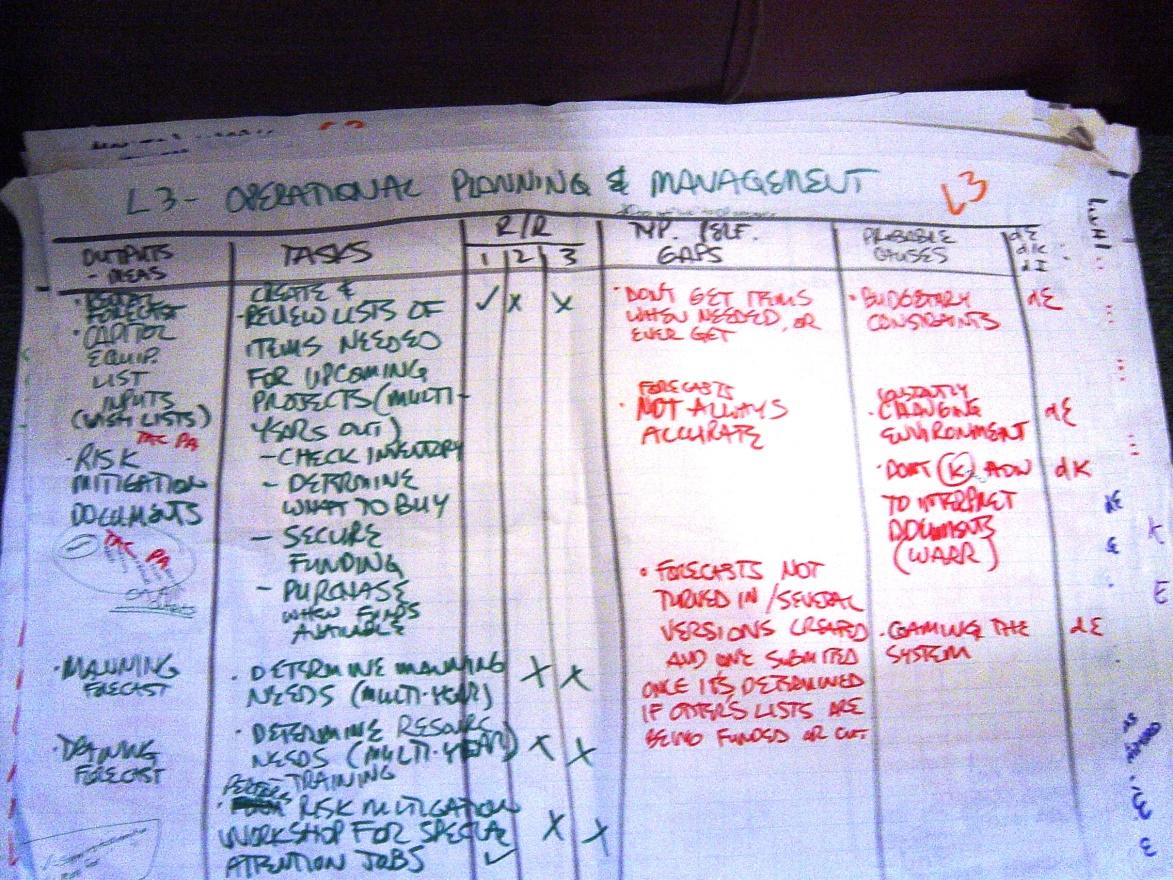 L3- OPERATIONAL PLANNING & MANAGEMENT
L3
OUTPUTS
- MEAS
TASKS
R/R
1 2 3
TYP. PERF.
GAPS
PROBABLE
CAUSES
dE
dK
dI
FORECAST
· CAPITOL
EQUIP.
LIST
INPUTS
(WISH LISTS)
TAC PA
· RISK
MITIGATION
DOCUMENTS
TAC PA
· MANNING
FORECAST
· TRAINING
FORECAST
CREATE &
- REVIEW LISTS OF
ITEMS NEEDED
FOR UPCOMING
PROJECTS (MULTI-
YEARS OUT)
- CHECK INVENTORY
- DETERMINE
WHAT TO BUY
- SECURE
FUNDING
- PURCHASE
WHEN FUNDS
AVAILABLE
· DETERMINE MANNING
NEEDS (MULTI-YEAR)
· DETERMINE
NEEDS (MULTI-YEAR)
TRAINING
RISK MITIGATION
WORKSHOP FOR SPECIAL
ATTENTION JOBS
✓ X X
X X
X X
X X
✓
· DON'T GET ITEMS
WHEN NEEDED, OR
EVER GET
FORECASTS
· NOT ALWAYS
ACCURATE
· FORECASTS NOT
TURNED IN / SEVERAL
VERSIONS CREATED
AND ONE SUBMITED
ONCE ITS DETERMINED
IF OTHER'S LISTS ARE
BEING FUNDED OR CUT
· BUDGETARY
CONSTRAINTS
dE
CONSTANTLY
· CHANGING
ENVIRONMENT
dE
· DON'T K. HOW
dK
TO INTERPRET
DOCUMENTS
(WARR)
· GAMING THE
SYSTEM
dE